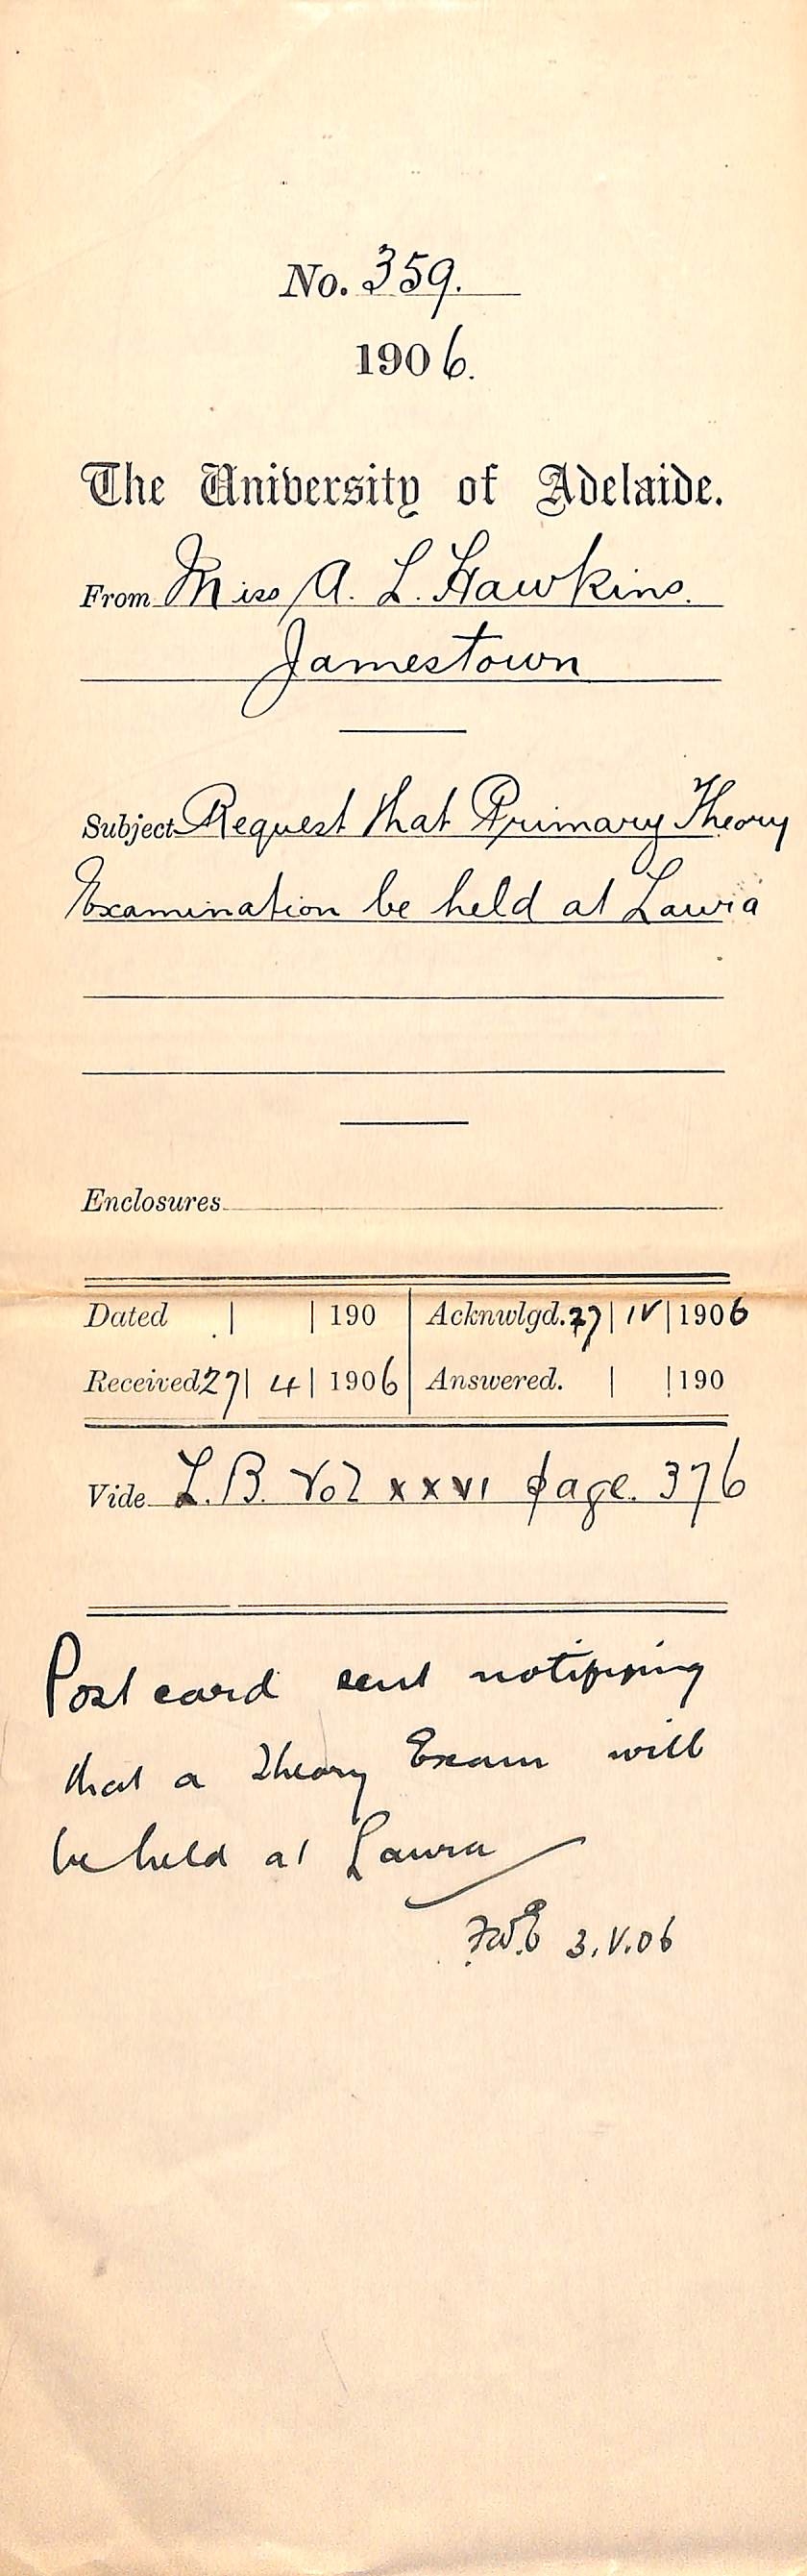 No. 359.
1906.
The University of Adelaide.
From Miss A. L. Hawkins.
Jamestown
Subject Request that Primary Theory
Examination be held at Laura
Enclosures
Dated | | 190 Acknwlgd. 27 | IV | 1906
Received 27 | 4 | 1906 Answered. | | 190
Vide L.B. Vol xxvi page. 376
Post card sent notifying
that a Theory Exam will
be held at Laura
F.W.E 3.V.06